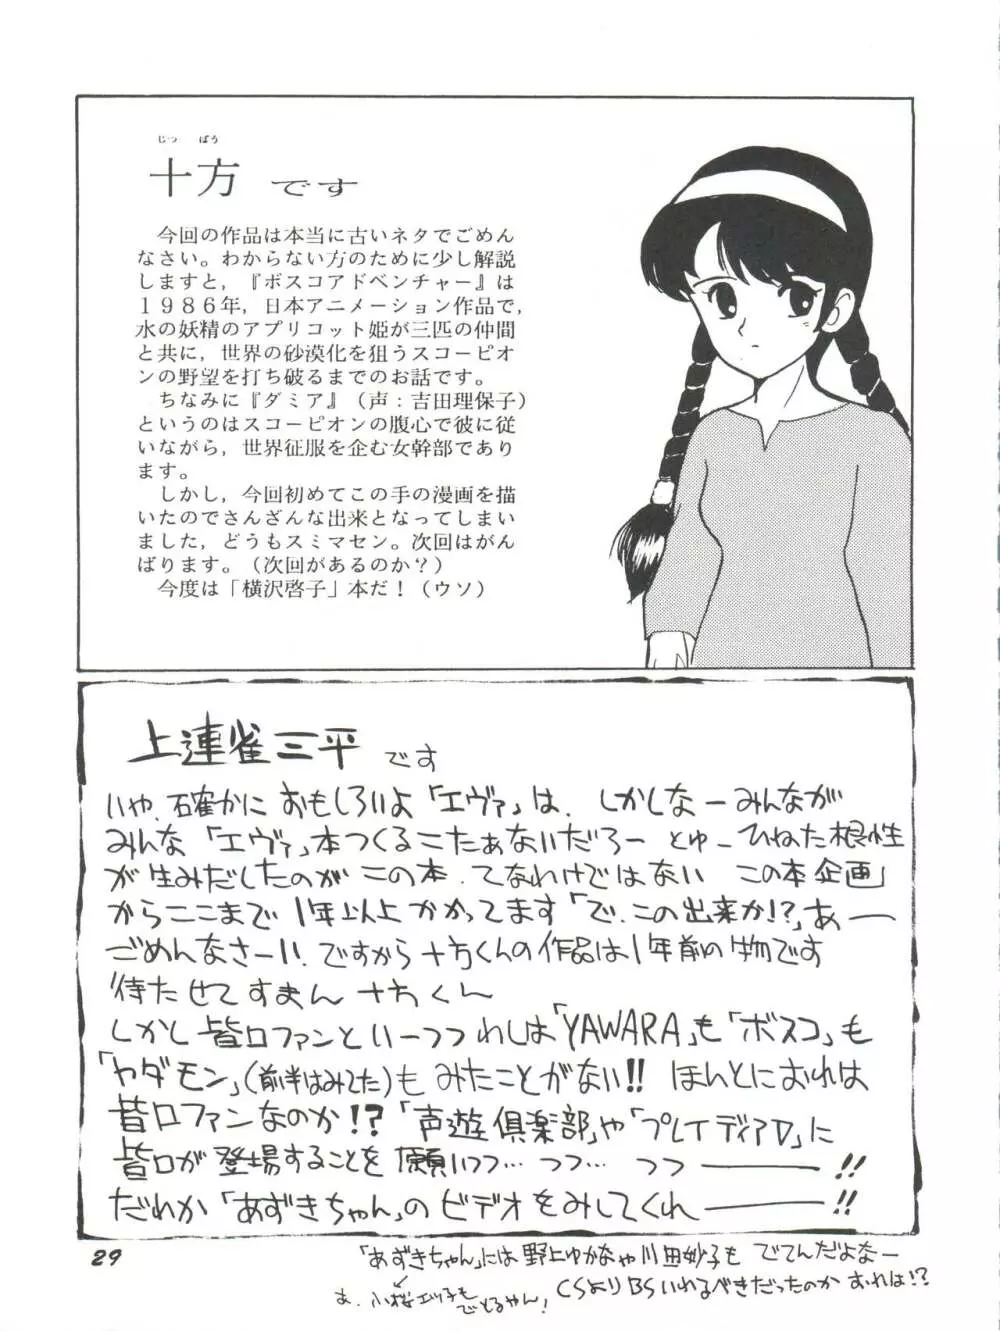 じっ ぽう
十方 です
今回の作品は本当に古いネタでごめん
なさい。わからない方のために少し解説
しますと，『ボスコアドベンチャー』は
１９８６年，日本アニメーション作品で，
水の妖精のアプリコット姫が三匹の仲間
と共に，世界の砂漠化を狙うスコーピオ
ンの野望を打ち破るまでのお話です。
ちなみに『ダミア』（声：吉田理保子）
というのはスコーピオンの腹心で彼に従
いながら，世界征服を企む女幹部であり
ます。
しかし，今回初めてこの手の漫画を描
いたのでさんざんな出来となってしまい
ました，どうもスミマセン。次回はがん
ばります。（次回があるのか？）
今度は「横沢啓子」本だ！（ウソ）
上連雀三平 です
いや、確かに おもしろいよ「エヴァ」は、しかしなーみんなが
みんな「エヴァ」本つくるこたぁないだろー とゅーひねた根性
が生みだしたのが この本、てなわけではない この本 企画」
からここまで 1年以上 かかってます「で、この出来か!?」あー
ごめんなさーい、ですから 十方くんの作品は1年前の物です
待たせてすまん 十方くん
しかし 皆口ファンといーつつ わしは「YAWARA」も「ボスコ」も
「ヤダモン」(前半はみてた)も みたことがない!! ほんとにおれは
皆口ファンなのか!? 「声遊倶楽部」や「プレイディアD」に
皆口が 登場することを 願いつつ… つつ… つつ――!!
だれか「あずきちゃん」の ビデオをみしてくれ――!!
29
「あずきちゃん」には 野上ゆかなや川田妙子も でてんだよなー
あ、小桜エツ子も でとるやん!
CSよりBSいれるべきだったのか おれは!?